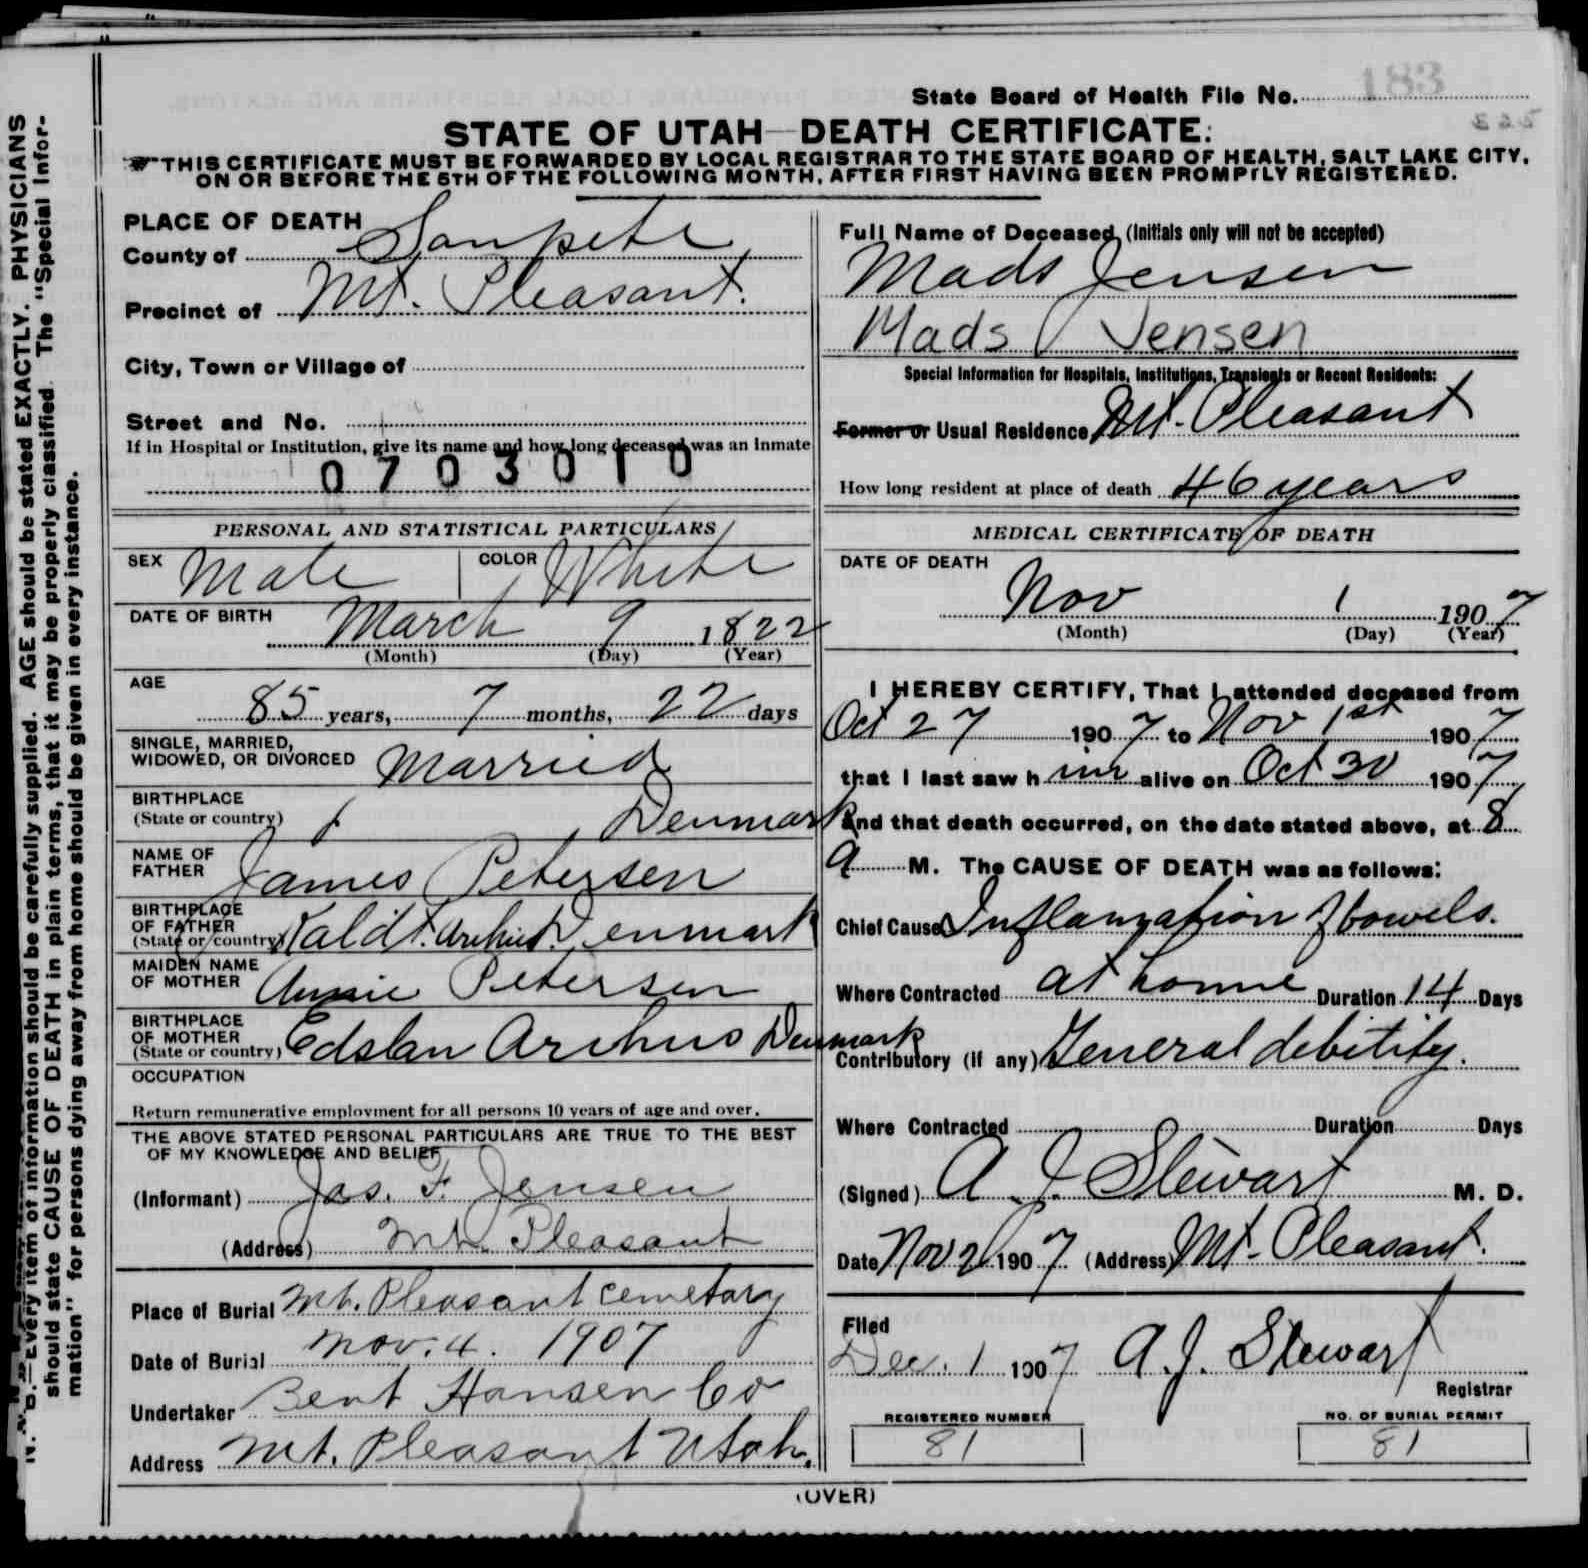 183
State Board of Health File No.
STATE OF UTAH—DEATH CERTIFICATE.
THIS CERTIFICATE MUST BE FORWARDED BY LOCAL REGISTRAR TO THE STATE BOARD OF HEALTH, SALT LAKE CITY,
ON OR BEFORE THE 5TH OF THE FOLLOWING MONTH, AFTER FIRST HAVING BEEN PROMPTLY REGISTERED.
N. B.—Every item of information should be carefully supplied. AGE should be stated EXACTLY. PHYSICIANS
should state CAUSE OF DEATH in plain terms, that it may be properly classified. The "Special Infor-
mation" for persons dying away from home should be given in every instance.
PLACE OF DEATH
County of Sanpete
Precinct of Mt. Pleasant.
City, Town or Village of
Street and No.
If in Hospital or Institution, give its name and how long deceased was an inmate
0703010
PERSONAL AND STATISTICAL PARTICULARS
SEX Male COLOR White
DATE OF BIRTH March 9 1822
(Month) (Day) (Year)
AGE
85 years, 7 months, 22 days
SINGLE, MARRIED,
WIDOWED, OR DIVORCED Married
BIRTHPLACE
(State or country) Denmark
NAME OF
FATHER James Petersen
BIRTHPLACE
OF FATHER
(State or country) Denmark
MAIDEN NAME
OF MOTHER Annie Petersen
BIRTHPLACE
OF MOTHER
(State or country) Arihus Denmark
OCCUPATION
Return remunerative employment for all persons 10 years of age and over.
THE ABOVE STATED PERSONAL PARTICULARS ARE TRUE TO THE BEST
OF MY KNOWLEDGE AND BELIEF
(Informant) Jas. F. Jensen
(Address) Mt. Pleasant
Place of Burial Mt. Pleasant Cemetary
Date of Burial Nov. 4. 1907
Undertaker Bent Hansen Co
Address Mt. Pleasant Utah.
Full Name of Deceased (Initials only will not be accepted)
Mads Jensen
Mads Jensen
Special Information for Hospitals, Institutions, Transients or Recent Residents:
Former or Usual Residence Mt. Pleasant
How long resident at place of death 46 years
MEDICAL CERTIFICATE OF DEATH
DATE OF DEATH
Nov 1 1907
(Month) (Day) (Year)
I HEREBY CERTIFY, That I attended deceased from
Oct 27 1907 to Nov 1st 1907
that I last saw him alive on Oct 30 1907
and that death occurred, on the date stated above, at 8
a M. The CAUSE OF DEATH was as follows:
Chief Cause Inflamation of bowels.
Where Contracted at home Duration 14 Days
Contributory (if any) General debility.
Where Contracted Duration Days
(Signed) A. J. Stewart M. D.
Date Nov 2 1907 (Address) Mt. Pleasant.
Filed
Dec. 1 1907 A. J. Stewart
Registrar
REGISTERED NUMBER
81
NO. OF BURIAL PERMIT
81
(OVER)